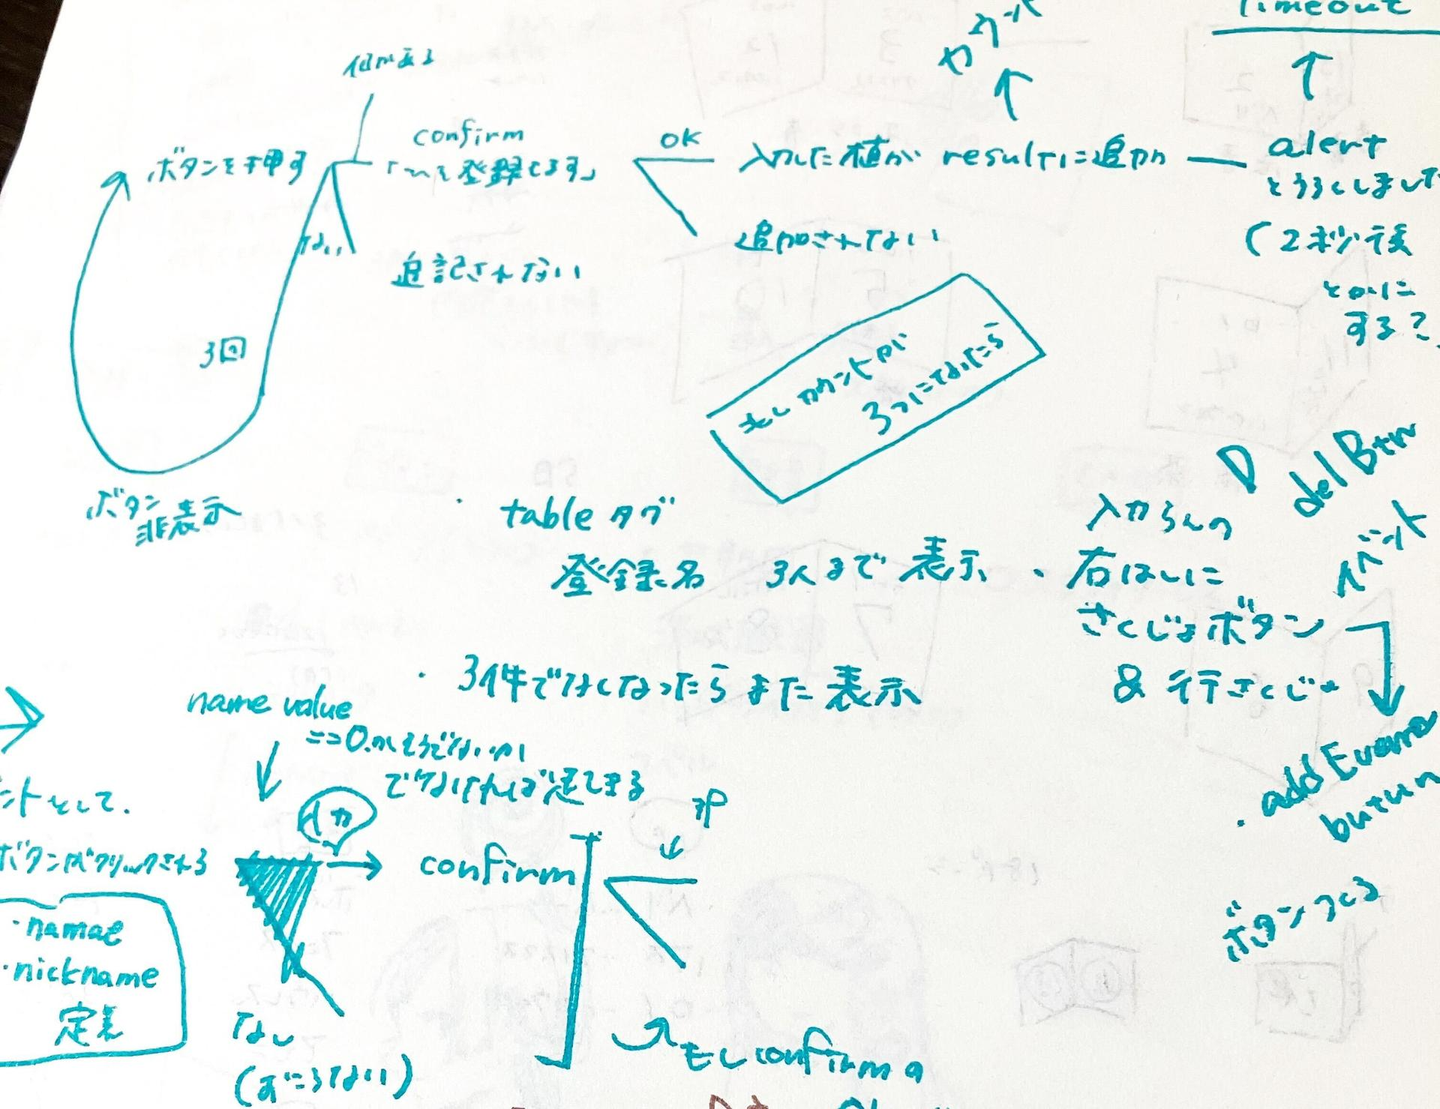 カウント
Timeout
何かある
ボタンを押す
confirm
「〜を登録しますか」
OK
入力した値が resultに追加
alert
とうろくしました
(2秒後
とかに
する?
ない
追記されない
追加されない
3回
もしカウントが
3つになったら
ボタン
非表示
・table タグ
登録名 3人まで 表示
・入力らんの
右はしに
さくじょボタン
& 行さくじょ
delBtn
イベント
・3件でなくなったら また 表示
・addEvent
button
ボタンつくる
name value
==0かそうでないか
でなければ定できる
ントとして.
入力
ボタンがクリックされる
confirm
・namae
・nickname
定義
なし
(おこらない)
もしconfirmの